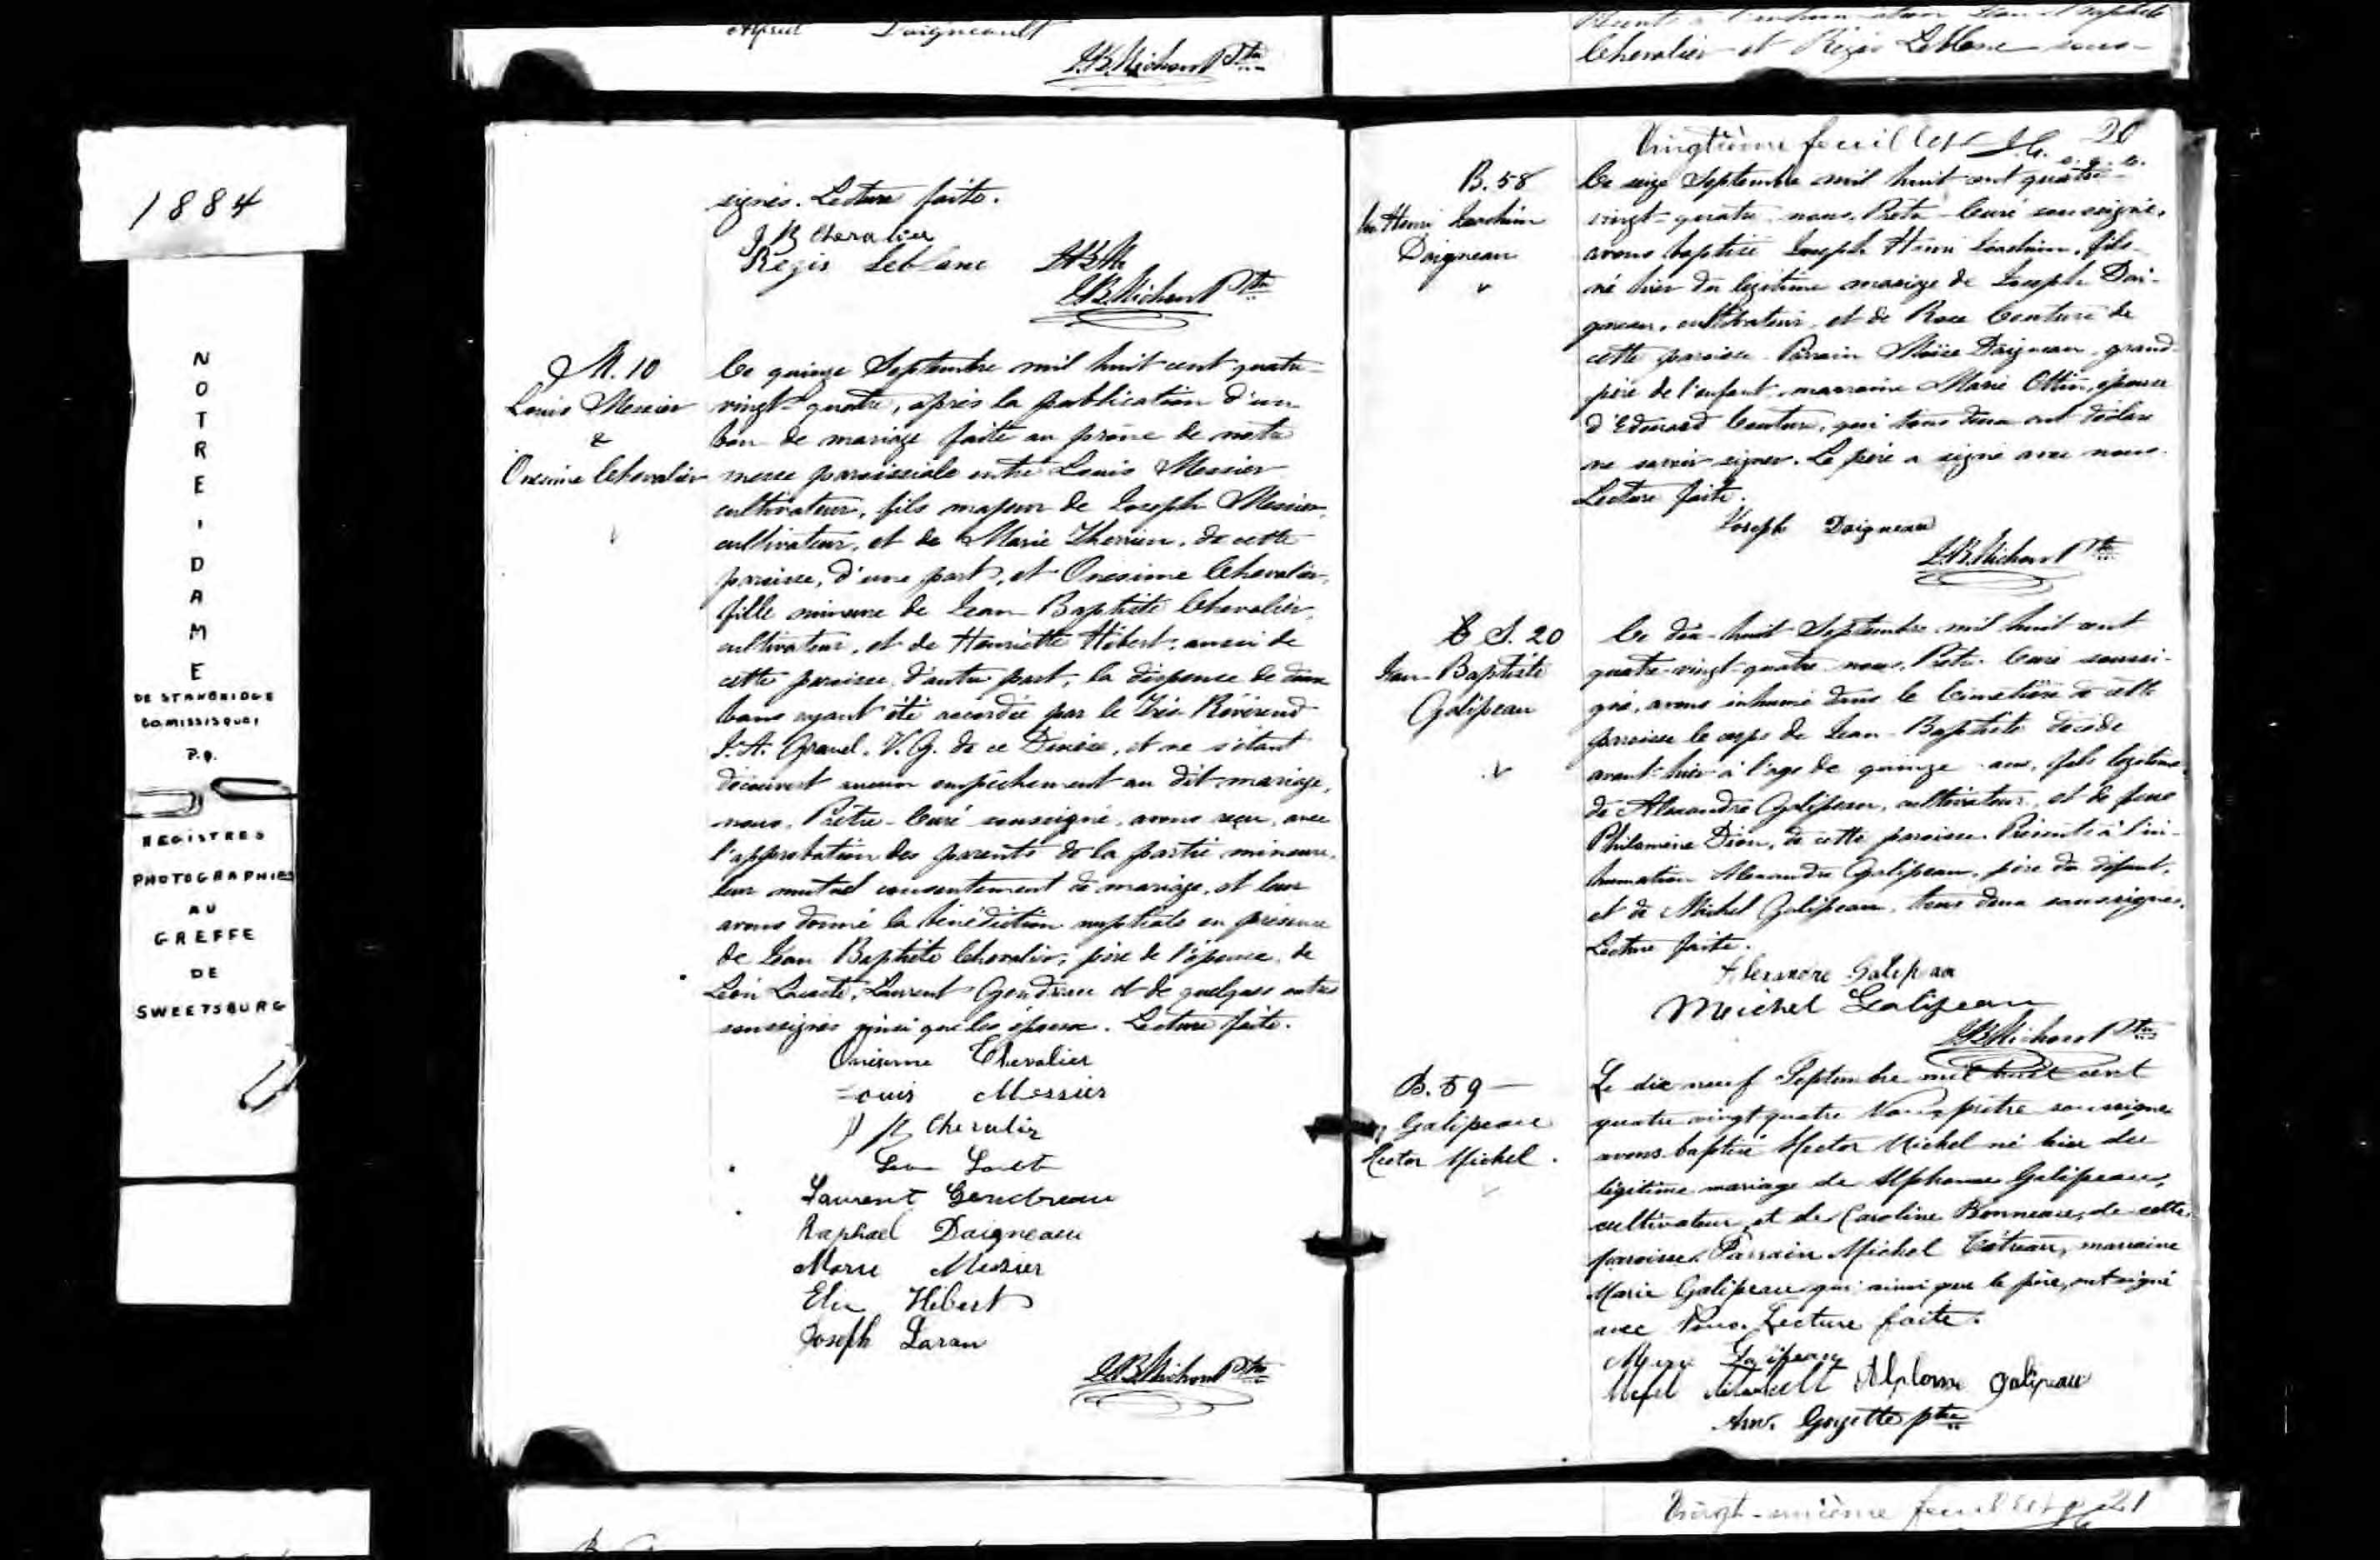 Alfred Daigneault
J.B. Michon Ptre
Chevalier et Régis Leblanc sous-
1884
NOTRE-DAME
DE STANBRIDGE
COMISSISQUOI
P.Q.
REGISTRES
PHOTOGRAPHIES
AU
GREFFE
DE
SWEETSBURG
signés. Lecture faite.
J B Chevalier
Régis Leblanc
J.B. Michon Ptre
M. 10
Louis Messier
&
Onesime Chevalier
Ce quinze Septembre mil huit cent quatre-
vingt-quatre, après la publication d'un
ban de mariage faite au prône de notre
messe paroissiale entre Louis Messier
cultivateur, fils majeur de Joseph Messier,
cultivateur, et de Marie Therrien, de cette
paroisse, d'une part, et Onesime Chevalier,
fille mineure de Jean-Baptiste Chevalier,
cultivateur, et de Henriette Hébert, aussi de
cette paroisse, d'autre part, la dispense de deux
bans ayant été accordée par le Très Révérend
J. A. Gravel, V. G. de ce Diocèse, et ne s'étant
découvert aucun empêchement au dit mariage,
nous, Prêtre-Curé soussigné, avons reçu, avec
l'approbation des parents de la partie mineure,
leur mutuel consentement de mariage, et leur
avons donné la bénédiction nuptiale en présence
de Jean Baptiste Chevalier, père de l'épouse, de
Léon Laurent Gendreau et de quelques autres
soussignés ainsi que les époux. Lecture faite.
Onésime Chevalier
Louis Messier
Chevalier
Laurent Gendreau
Raphael Daigneau
Messier
Hébert
Joseph
J.B. Michon Ptre
Vingtième feuillet 20
B. 58
Jos Henri Joachim
Daigneau
Ce seize Septembre mil huit cent quatre-
vingt-quatre, nous, Prêtre-Curé soussigné,
avons baptisé Joseph Henri Joachim, fils
né hier du légitime mariage de Joseph Dai-
gneau, cultivateur, et de Rose Couture de
cette paroisse. Parrain Moïse Daigneau, grand-
père de l'enfant, marraine Marie Ottin, épouse
d'Edouard Couture, qui tous deux ont déclaré
ne savoir signer. Le père a signé avec nous.
Lecture faite.
Joseph Daigneau
J.B. Michon Ptre
S. 20
Jean-Baptiste
Galipeau
Ce dix-huit Septembre mil huit cent
quatre-vingt-quatre, nous, Prêtre Curé soussi-
gné, avons inhumé dans le Cimetière de cette
paroisse le corps de Jean-Baptiste décédé
avant-hier à l'age de quinze ans, fils légitime
de Alexandre Galipeau, cultivateur, et de feue
Philomène Dion, de cette paroisse. Présents à l'in-
humation Alexandre Galipeau, père du défunt,
et de Michel Galipeau, tous deux soussignés.
Lecture faite.
Alexandre Galipeau
Meichel Galipeau
J.B. Michon Ptre
B. 59
Galipeau
Hector Michel.
Le dix neuf Septembre mil huit cent
quatre vingt quatre Nous prêtre soussigné
avons baptisé Hector Michel né hier du
légitime mariage de Alphonse Galipeau,
cultivateur, et de Caroline Bonneau, de cette
paroisse. Parrain Michel Tétreau, marraine
Marie Galipeau qui ainsi que le père, ont signé
avec Nous. Lecture faite.
Galipeau
Alphonse Galipeau
Goyette ptre
Vingt-unième feuillet 21